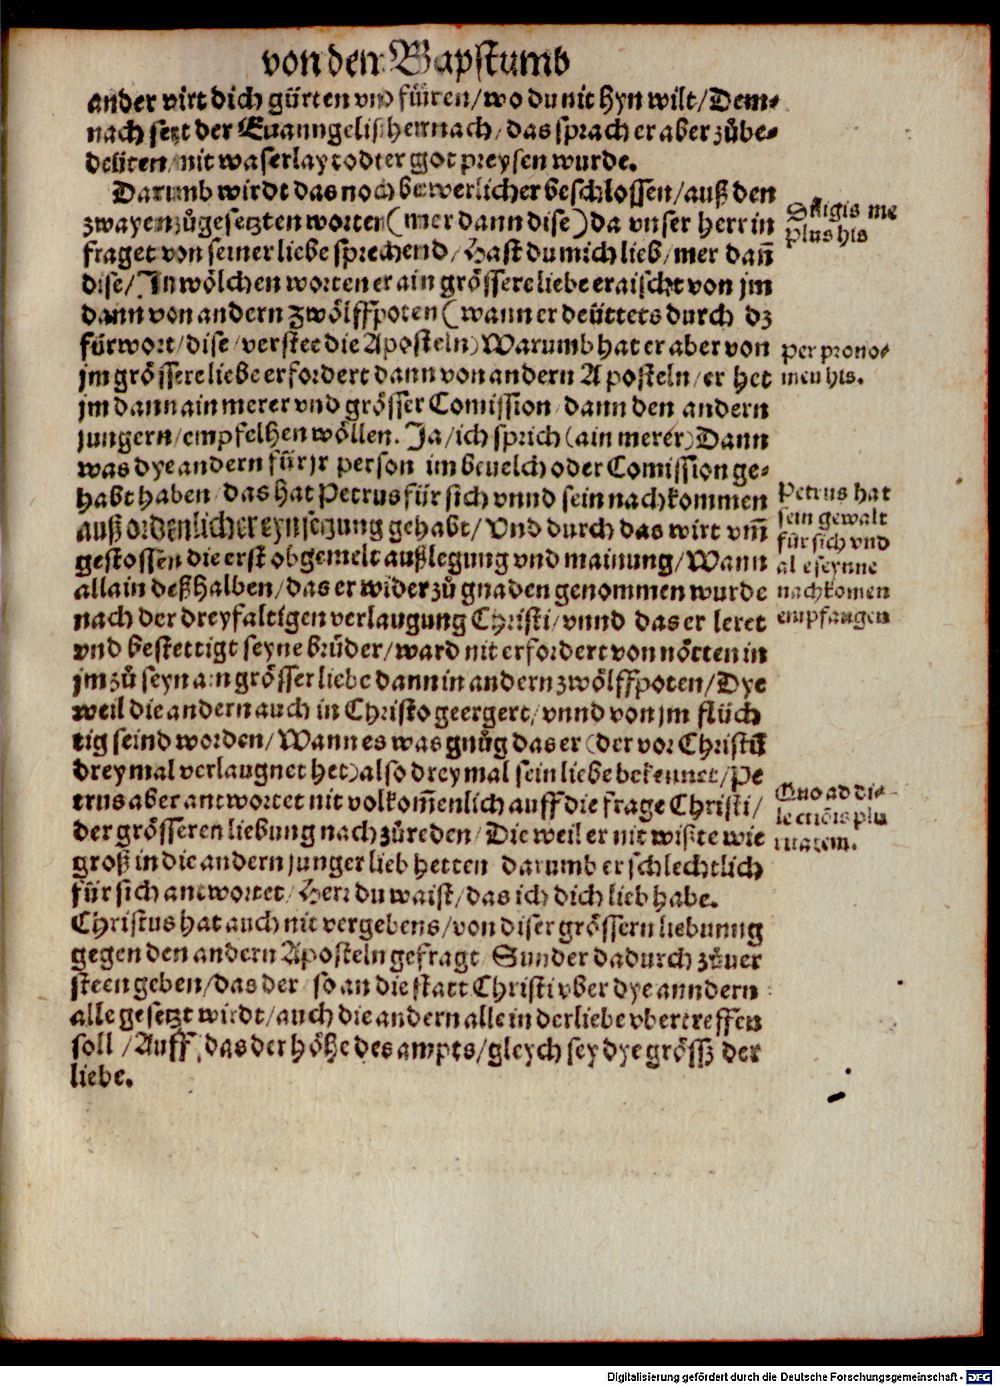 von dem Bapstumb
ander wirt dich gürten vnd füren/ wo du nit hyn wilt/ Dem⸗
nach setzt der Euanngelist hernnach/ das sprach er aber zůbe⸗
deüten/ mit waserlay todt er got preysen wurde.
Darumb wirdt das noch bewerlicher beschlossen/ auß den
zwayen zůgesetzten worten (mer dann dise) da vnser herr in
fraget von seiner liebe sprechend/ Hast du mich lieb/ mer dañ
dise/ In wölchen worten er ain grössere liebe eraischt von jm
dann von andern zwölffpoten (wann er deüttets durch dz
fürwort/ dise/ verstee die Aposteln) Warumb hat er aber von
jm grössere liebe erfordert dann von andern Aposteln/ er het
jm dann ain merer vnd grösser Comission/ dann den andern
jungern/ empfelhen wöllen. Ja/ ich sprich (ain merer) Dann
was dye andern für jr person im beuelch oder Comission ge⸗
habt haben/ das hat Petrus für sich vnnd sein nachkommen
auß ordenlicher eynsetzung gehabt/ Vnd durch das wirt vm̃
gestossen die erst obgemelt außlegung vnd mainung/ Wann
allain deßhalben/ das er wider zů gnaden genommen wurde
nach der dreyfaltigen verlaugung Christi/ vnnd das er leret
vnd bestettigt seyne brüder/ ward nit erfordert von nötten in
jm zů seyn ain grösser liebe dann in andern zwölffpoten/ Dye
weil die andern auch in Christo geergert/ vnnd von jm flüch
tig seind worden/ Wann es was gnůg das er (der vor Christū
drey mal verlaugnet het) also drey mal sein liebe bekennet/ Pe
trus aber antwortet nit volkom̃enlich auff die frage Christi/
der grösseren liebung nach zůreden/ Die weil er nit wißte wie
groß in die andern junger lieb hetten darumb er schlechtlich
für sich antwortet/ Herr du waist/ das ich dich lieb habe.
Christus hat auch nit vergebens/ von diser grössern liebunng
gegen den andern Aposteln gefragt Sunder dadurch zůuer
steen geben/ das der so an die statt Christi vber dye anndern
alle gesetzt wirdt/ auch die andern alle in der liebe vbertreffen
soll/ Auff das der höhe des ampts/ gleych sey dye grösß der
liebe.
Diligis me
plus his
per prono⸗
men his.
Petrus hat
sein gewalt
für sich vnd
al e seynne
nachkomen
empfangen
Quo ad di⸗
lectiōis plu
Digitalisierung gefördert durch die Deutsche Forschungsgemeinschaft - DFG